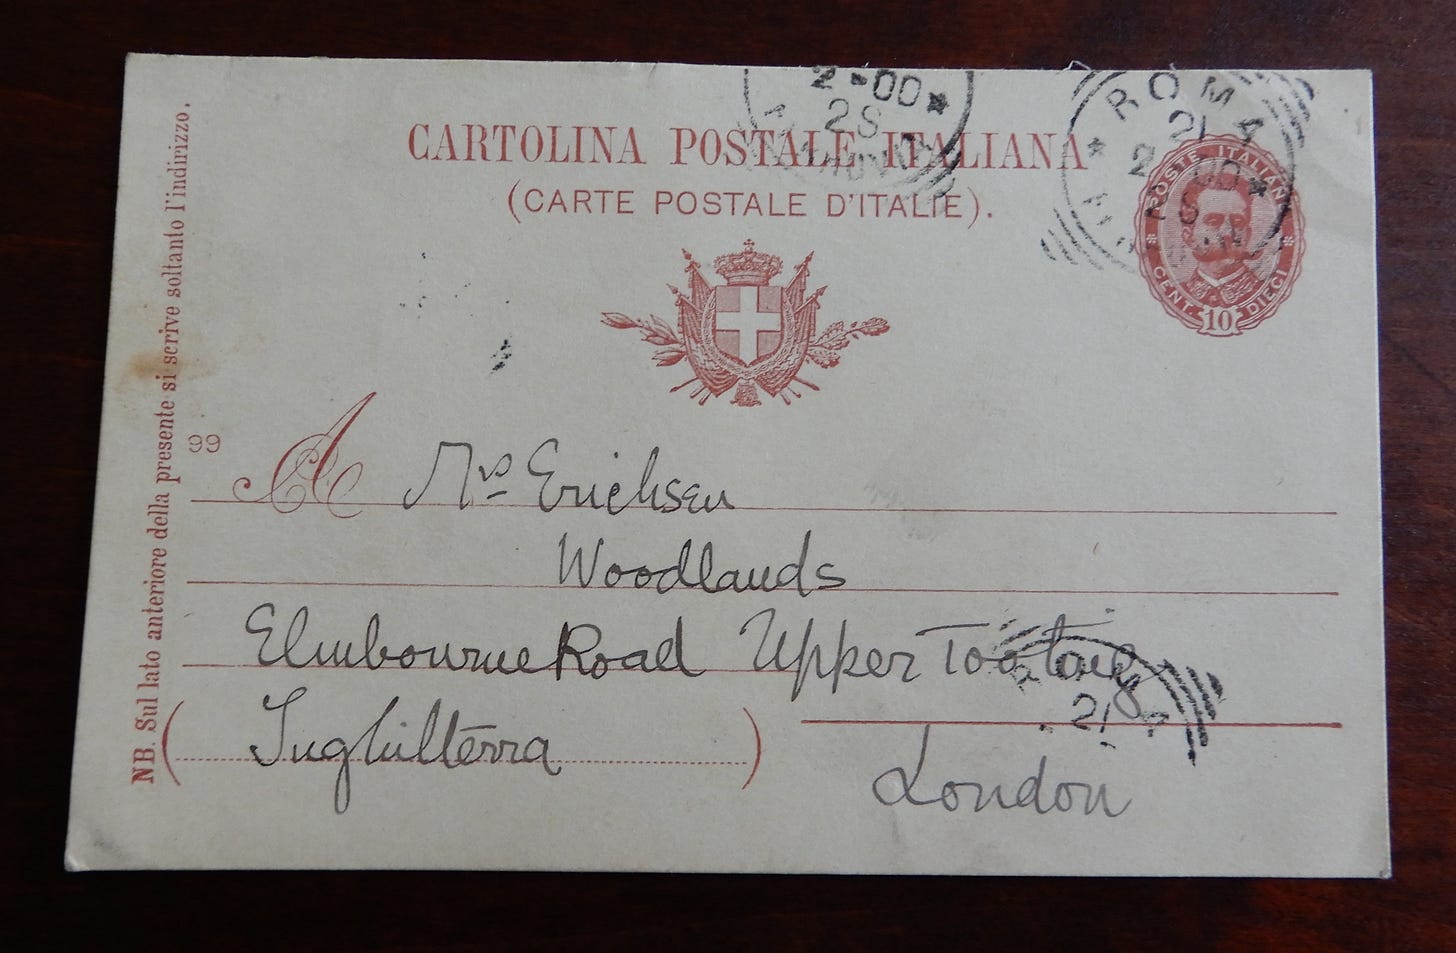 CARTOLINA POSTALE ITALIANA
(CARTE POSTALE D'ITALIE).
2-00
2S
ROMA
21
POSTE ITALIANE
CENT. 10 DIECI
NB. Sul lato anteriore della presente si scrive soltanto l'indirizzo.
99
A Mrs Erichsen
Woodlands
Elmbourne Road Upper Tooting
(Inghilterra)
21
London